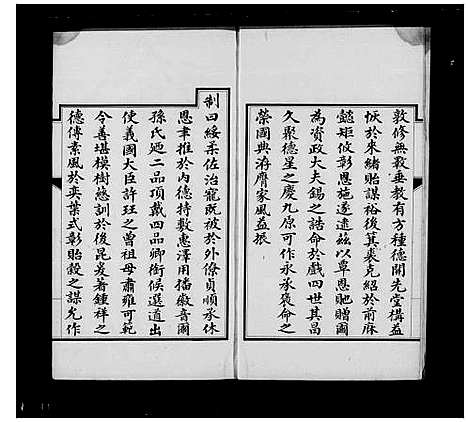 敦修無斁垂教有方種德開先堂構益
恢於來緒貽謀裕後箕裘克紹於前庥
懿矩攸彰恩施遂逮茲以覃恩貤贈爾
為資政大夫錫之誥命於戲四世其昌
久聚德星之慶九原可作永承褒命之
榮國典洊膺家風益振
制曰綏柔佐治寵既被於外僚貞順承休
恩聿推於內德持敷惠澤用播徽音爾
孫氏廼二品頂戴四品卿銜候選道出
使義國大臣許玨之曾祖母肅雍可範
令善堪模樹慈訓於後昆爰著鍾祥之
德傳素風於奕葉式彰貽穀之謀允作